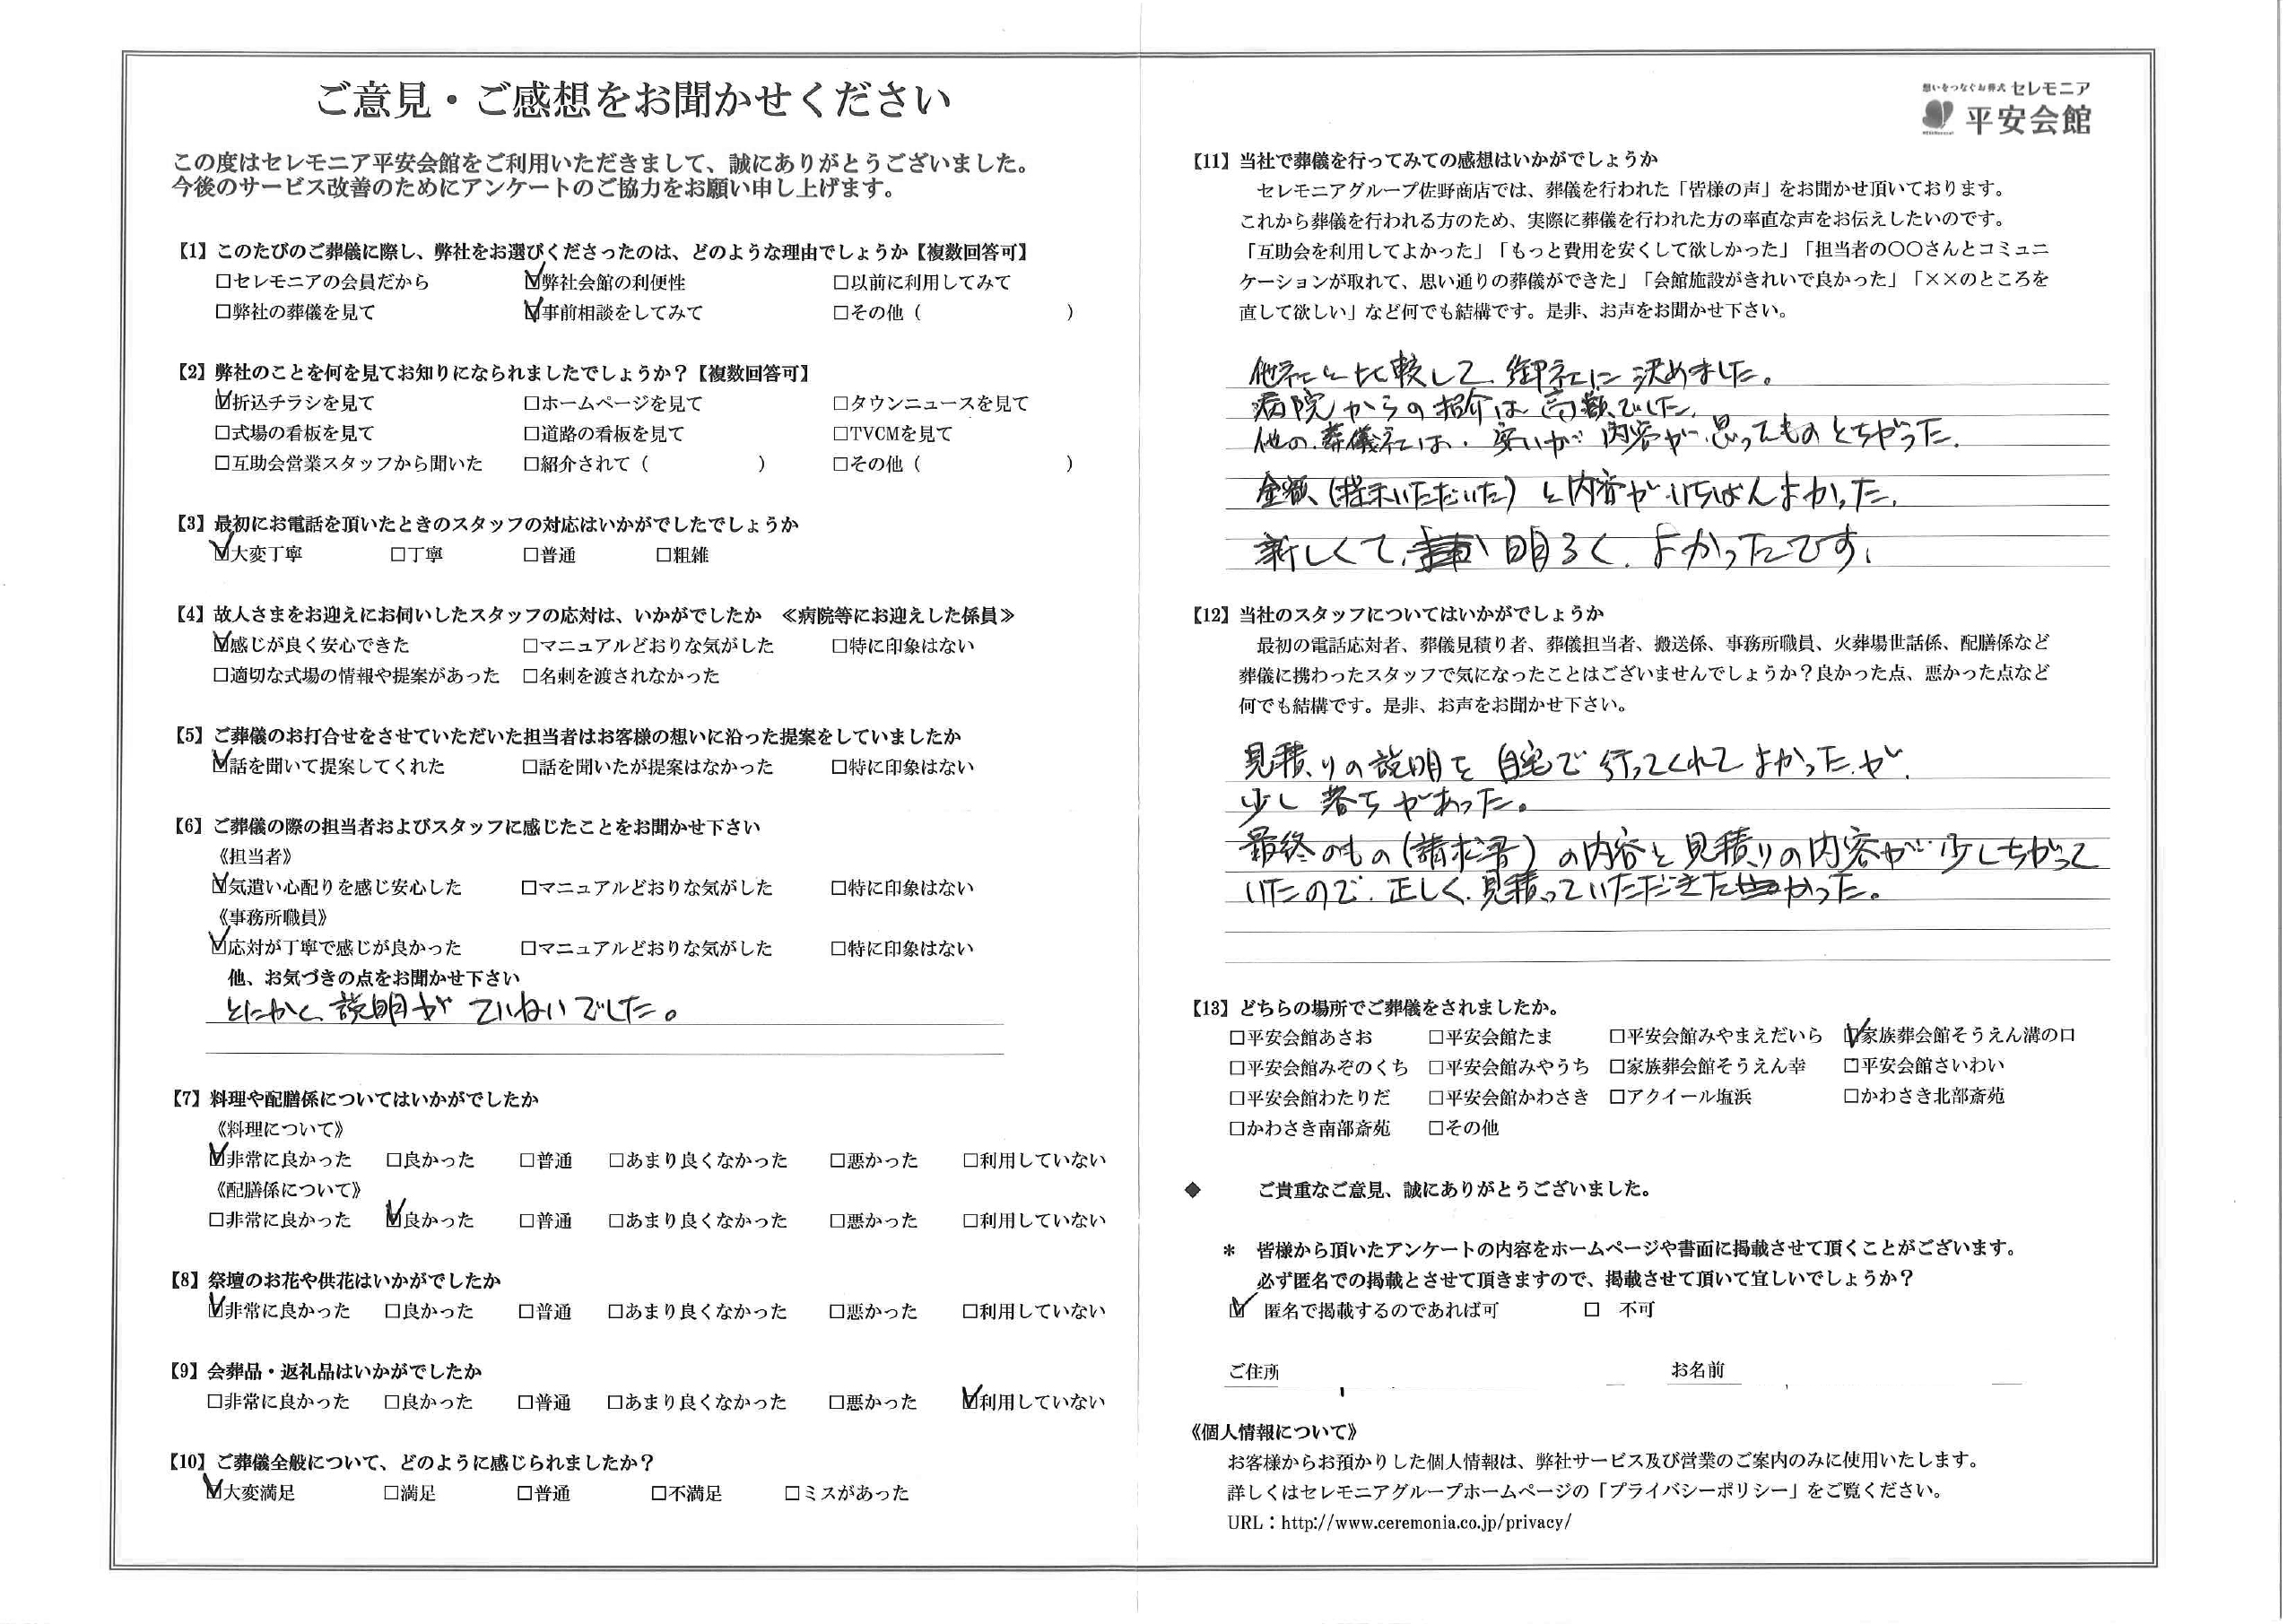 ご意見・ご感想をお聞かせください
この度はセレモニア平安会館をご利用いただきまして、誠にありがとうございました。
今後のサービス改善のためにアンケートのご協力をお願い申し上げます。
【1】このたびのご葬儀に際し、弊社をお選びくださったのは、どのような理由でしょうか【複数回答可】
□セレモニアの会員だから ☑弊社会館の利便性 □以前に利用してみて
□弊社の葬儀を見て ☑事前相談をしてみて □その他（ ）
【2】弊社のことを何を見てお知りになられましたでしょうか？【複数回答可】
☑折込チラシを見て □ホームページを見て □タウンニュースを見て
□式場の看板を見て □道路の看板を見て □TVCMを見て
□互助会営業スタッフから聞いた □紹介されて（ ） □その他（ ）
【3】最初にお電話を頂いたときのスタッフの対応はいかがでしたでしょうか
☑大変丁寧 □丁寧 □普通 □粗雑
【4】故人さまをお迎えにお伺いしたスタッフの応対は、いかがでしたか ≪病院等にお迎えした係員≫
☑感じが良く安心できた □マニュアルどおりな気がした □特に印象はない
□適切な式場の情報や提案があった □名刺を渡されなかった
【5】ご葬儀のお打合せをさせていただいた担当者はお客様の想いに沿った提案をしていましたか
☑話を聞いて提案してくれた □話を聞いたが提案はなかった □特に印象はない
【6】ご葬儀の際の担当者およびスタッフに感じたことをお聞かせ下さい
《担当者》
☑気遣い心配りを感じ安心した □マニュアルどおりな気がした □特に印象はない
《事務所職員》
☑応対が丁寧で感じが良かった □マニュアルどおりな気がした □特に印象はない
他、お気づきの点をお聞かせ下さい
とにかく、説明が ていねいでした。
【7】料理や配膳係についてはいかがでしたか
《料理について》
☑非常に良かった □良かった □普通 □あまり良くなかった □悪かった □利用していない
《配膳係について》
□非常に良かった ☑良かった □普通 □あまり良くなかった □悪かった □利用していない
【8】祭壇のお花や供花はいかがでしたか
☑非常に良かった □良かった □普通 □あまり良くなかった □悪かった □利用していない
【9】会葬品・返礼品はいかがでしたか
□非常に良かった □良かった □普通 □あまり良くなかった □悪かった ☑利用していない
【10】ご葬儀全般について、どのように感じられましたか？
☑大変満足 □満足 □普通 □不満足 □ミスがあった
想いをつなぐお葬式 セレモニア
平安会館
【11】当社で葬儀を行ってみての感想はいかがでしょうか
セレモニアグループ佐野商店では、葬儀を行われた「皆様の声」をお聞かせ頂いております。
これから葬儀を行われる方のため、実際に葬儀を行われた方の率直な声をお伝えしたいのです。
「互助会を利用してよかった」「もっと費用を安くして欲しかった」「担当者の〇〇さんとコミュニ
ケーションが取れて、思い通りの葬儀ができた」「会館施設がきれいで良かった」「××のところを
直して欲しい」など何でも結構です。是非、お声をお聞かせ下さい。
他社と比較して、御社に決めました。
病院からの紹介は高額でした。
他の葬儀社は、安いが内容が思ってものとちがった。
金額、(提示いただいた)と内容がいちばんよかった。
新しくて、明るく、よかったです。
【12】当社のスタッフについてはいかがでしょうか
最初の電話応対者、葬儀見積り者、葬儀担当者、搬送係、事務所職員、火葬場世話係、配膳係など
葬儀に携わったスタッフで気になったことはございませんでしょうか？良かった点、悪かった点など
何でも結構です。是非、お声をお聞かせ下さい。
見積りの説明を自宅で行ってくれてよかったが、
少し落ちがあった。
最終のもの(請求書)の内容と見積りの内容が少しちがって
いたので、正しく、見積っていただきたかった。
【13】どちらの場所でご葬儀をされましたか。
□平安会館あさお □平安会館たま □平安会館みやまえだいら ☑家族葬会館そうえん溝の口
□平安会館みぞのくち □平安会館みやうち □家族葬会館そうえん幸 □平安会館さいわい
□平安会館わたりだ □平安会館かわさき □アクイール塩浜 □かわさき北部斎苑
□かわさき南部斎苑 □その他
◆ ご貴重なご意見、誠にありがとうございました。
＊ 皆様から頂いたアンケートの内容をホームページや書面に掲載させて頂くことがございます。
必ず匿名での掲載とさせて頂きますので、掲載させて頂いて宜しいでしょうか？
☑ 匿名で掲載するのであれば可 □ 不可
ご住所 お名前
《個人情報について》
お客様からお預かりした個人情報は、弊社サービス及び営業のご案内のみに使用いたします。
詳しくはセレモニアグループホームページの「プライバシーポリシー」をご覧ください。
URL：http://www.ceremonia.co.jp/privacy/